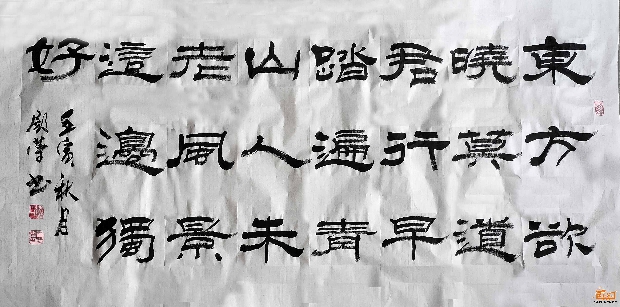 東方欲
曉莫道
君行早
踏遍青
山人未
老風景
這邊獨
好
壬寅秋月
書